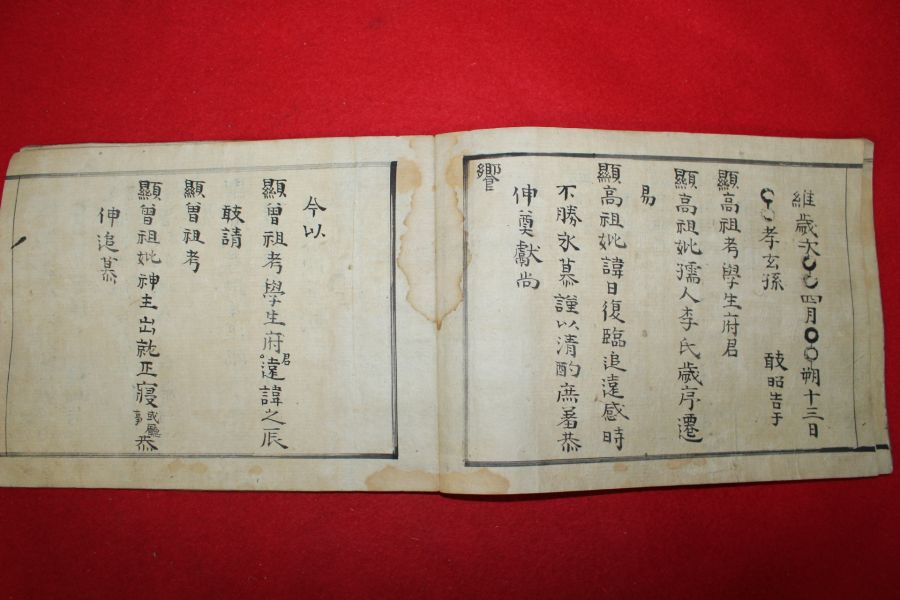 維歲次〇〇四月〇〇朔十三日
〇〇孝玄孫 敢昭告于
顯高祖考學生府君
顯高祖妣孺人李氏歲序遷
易
顯高祖妣諱日復臨追遠感時
不勝永慕謹以清酌庶羞恭
伸奠獻尚
饗
今以
顯曾祖考學生府君遠諱之辰
敢請
顯曾祖考
顯曾祖妣神主出就正寢或廳事恭
伸追慕